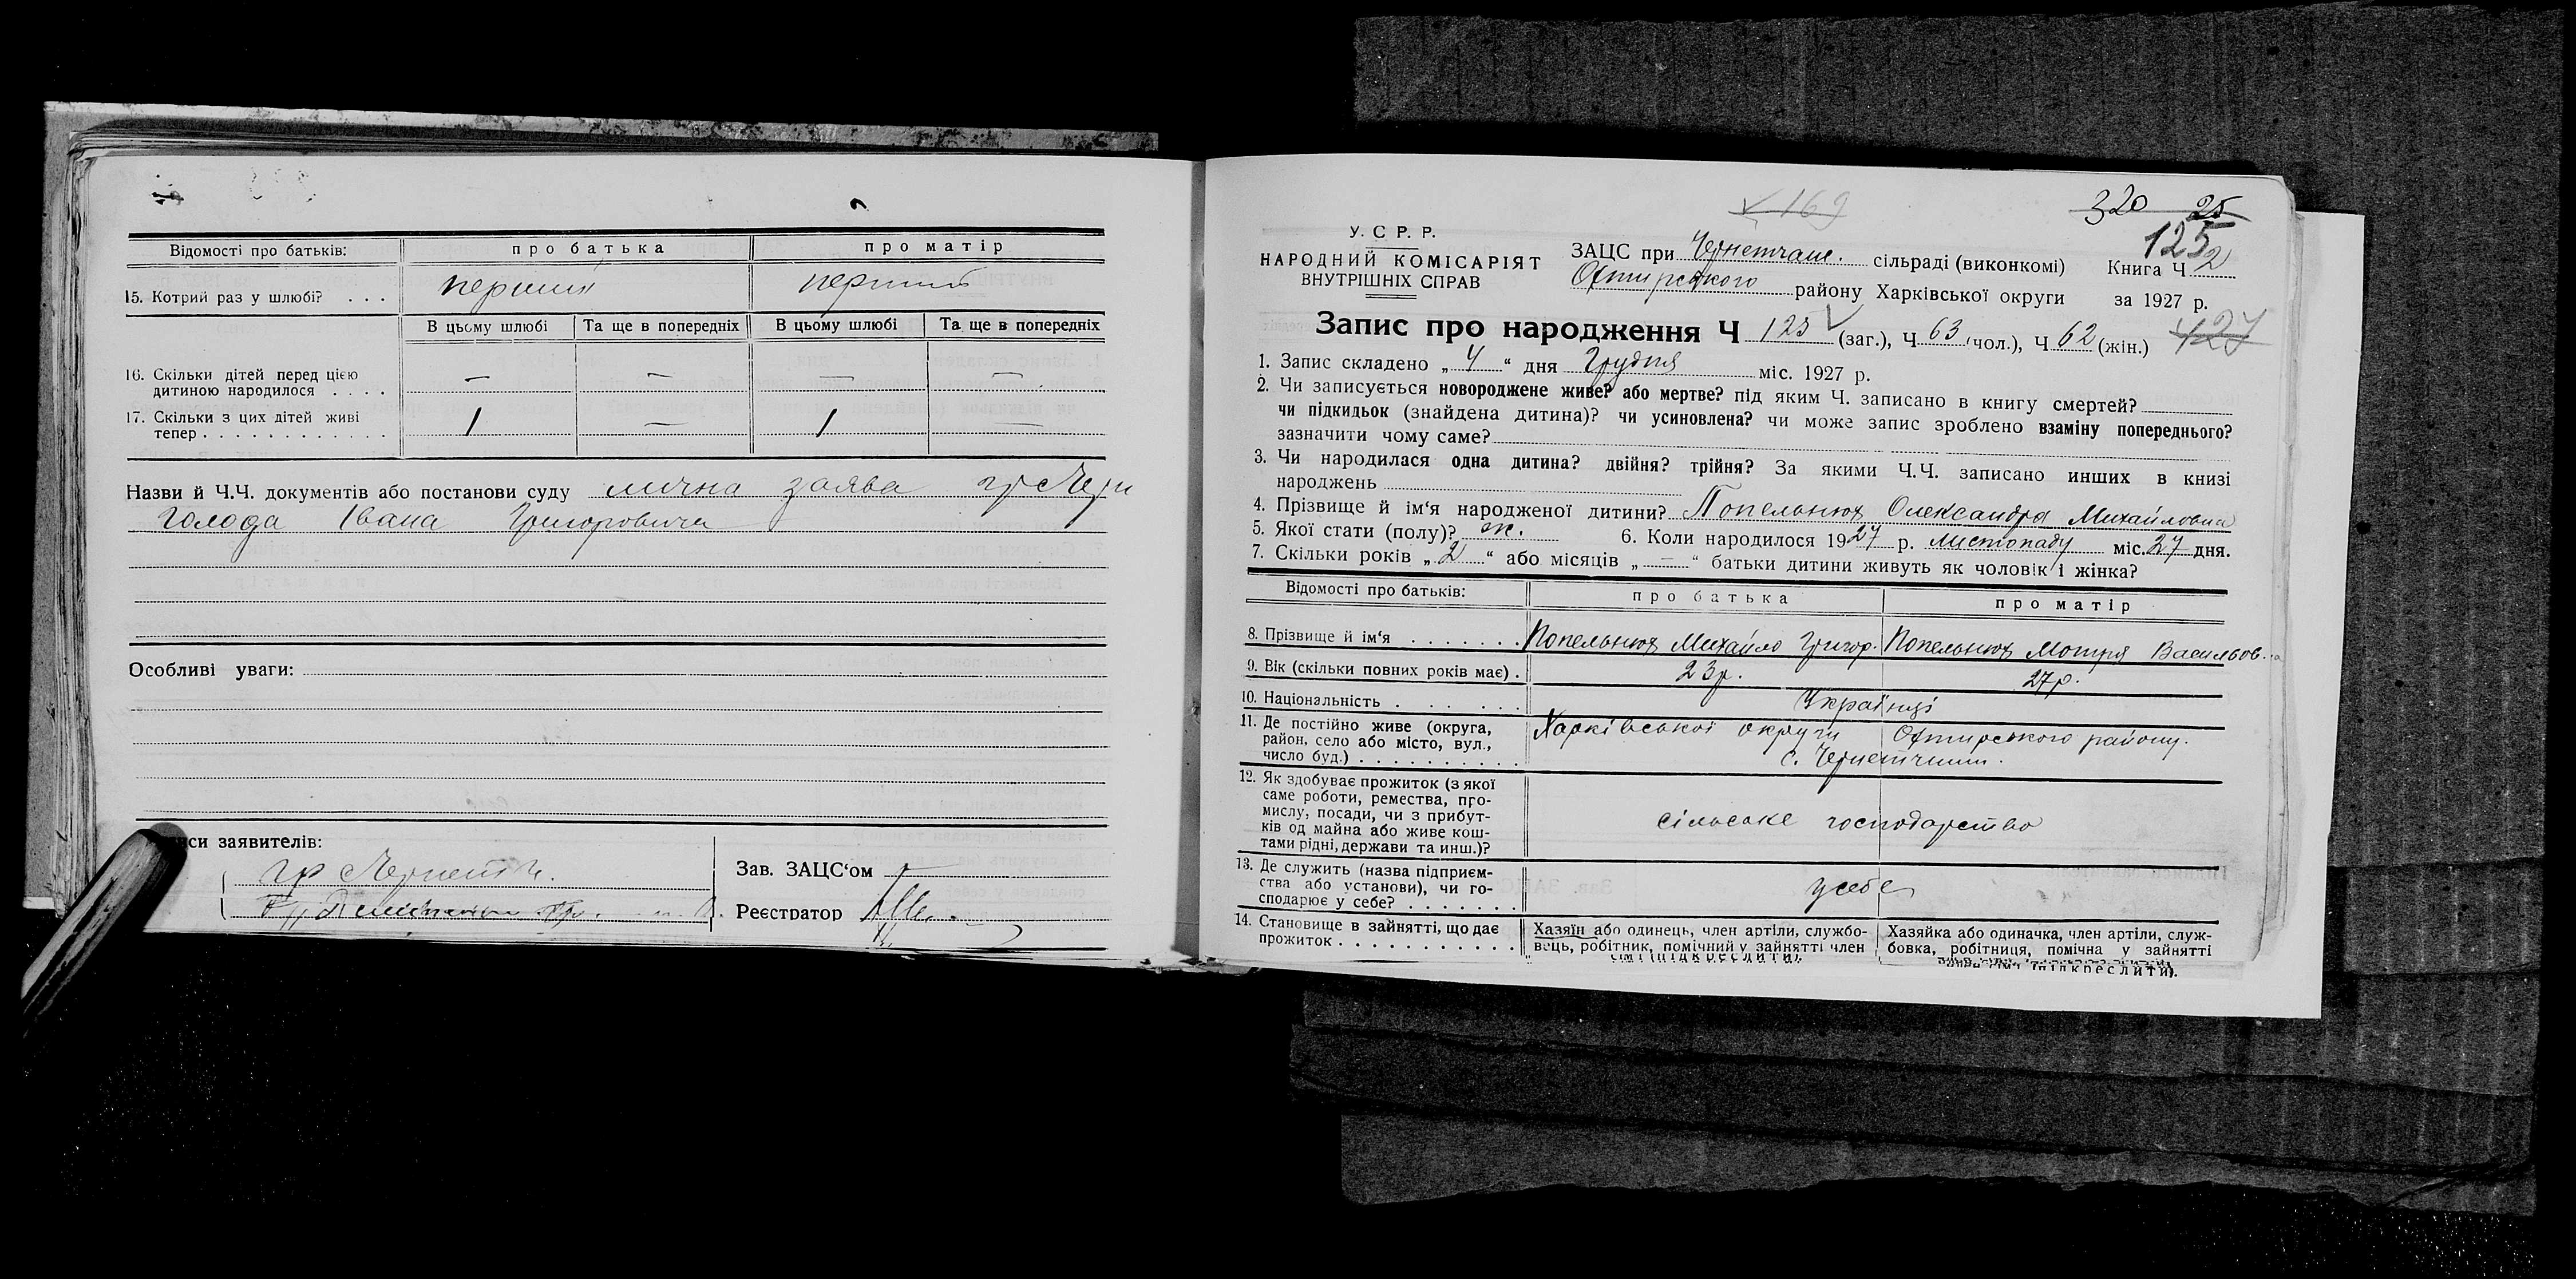 Відомості про батьків: про батька про матір
15. Котрий раз у шлюбі? . . . перший перший
В цьому шлюбі Та ще в попередніх В цьому шлюбі Та ще в попередніх
16. Скільки дітей перед цією
дитиною народилося . . . . — — — —
17. Скільки з цих дітей живі
тепер . . . . . . . . . . . . . 1 — 1 —
Назви й Ч.Ч. документів або постанови суду лична заява гр Черн
Голода Івана Григоровича
Особливі уваги:
си заявителів:
гр
Зав. ЗАЦС'ом
Реєстратор
169
320 25
125
У. С. Р. Р.
НАРОДНИЙ КОМІСАРІЯТ
ВНУТРІШНІХ СПРАВ
ЗАЦС при Чернетчанс. сільраді (виконкомі) Книга Ч 2
Охтирського району Харківської округи за 1927 р.
Запис про народження Ч 125 (заг.), Ч 63 (чол.), Ч 62 (жін.) 127
1. Запис складено „ 4 “ дня Грудня міс. 1927 р.
2. Чи записується новороджене живе? або мертве? під яким Ч. записано в книгу смертей?
чи підкидьок (знайдена дитина)? чи усиновлена? чи може запис зроблено взаміну попереднього?
зазначити чому саме?
3. Чи народилася одна дитина? двійня? трійня? За якими Ч.Ч. записано инших в книзі
народжень
4. Прізвище й ім'я народженої дитини? Попельнюх Олександра Михайловна
5. Якої стати (полу)? ж. 6. Коли народилося 1927 р. листопаду міс. 27 дня.
7. Скільки років „ 2 “ або місяців „ — “ батьки дитини живуть як чоловік і жінка?
Відомості про батьків: про батька про матір
8. Прізвище й ім'я . . . . . . . Попельнюх Михайло Григор. Попельнюх Мотря Васильов.
9. Вік (скільки повних років має) . 23р. 27р.
10. Національність . . . . . . Українці
11. Де постійно живе (округа,
район, село або місто, вул.,
число буд.) . . . . . . . . . . Харківської округи Охтирського району.
с. Чернетчини.
12. Як здобуває прожиток (з якої
саме роботи, ремества, про-
мислу, посади, чи з прибут-
ків од майна або живе кош-
тами рідні, держави та инш.)? сільське господарство
13. Де служить (назва підприєм-
ства або установи), чи го-
сподарює у себе? . . . . . . . усебе
14. Становище в зайнятті, що дає
прожиток . . . . . . . . . . . .
Хазяїн або одинець, член артіли, службо-
вець, робітник, помічний у зайнятті член
сім'ї (підкреслити).
Хазяйка або одиначка, член артіли, служ-
бовка, робітниця, помічна у зайнятті
член сім'ї (підкреслити).